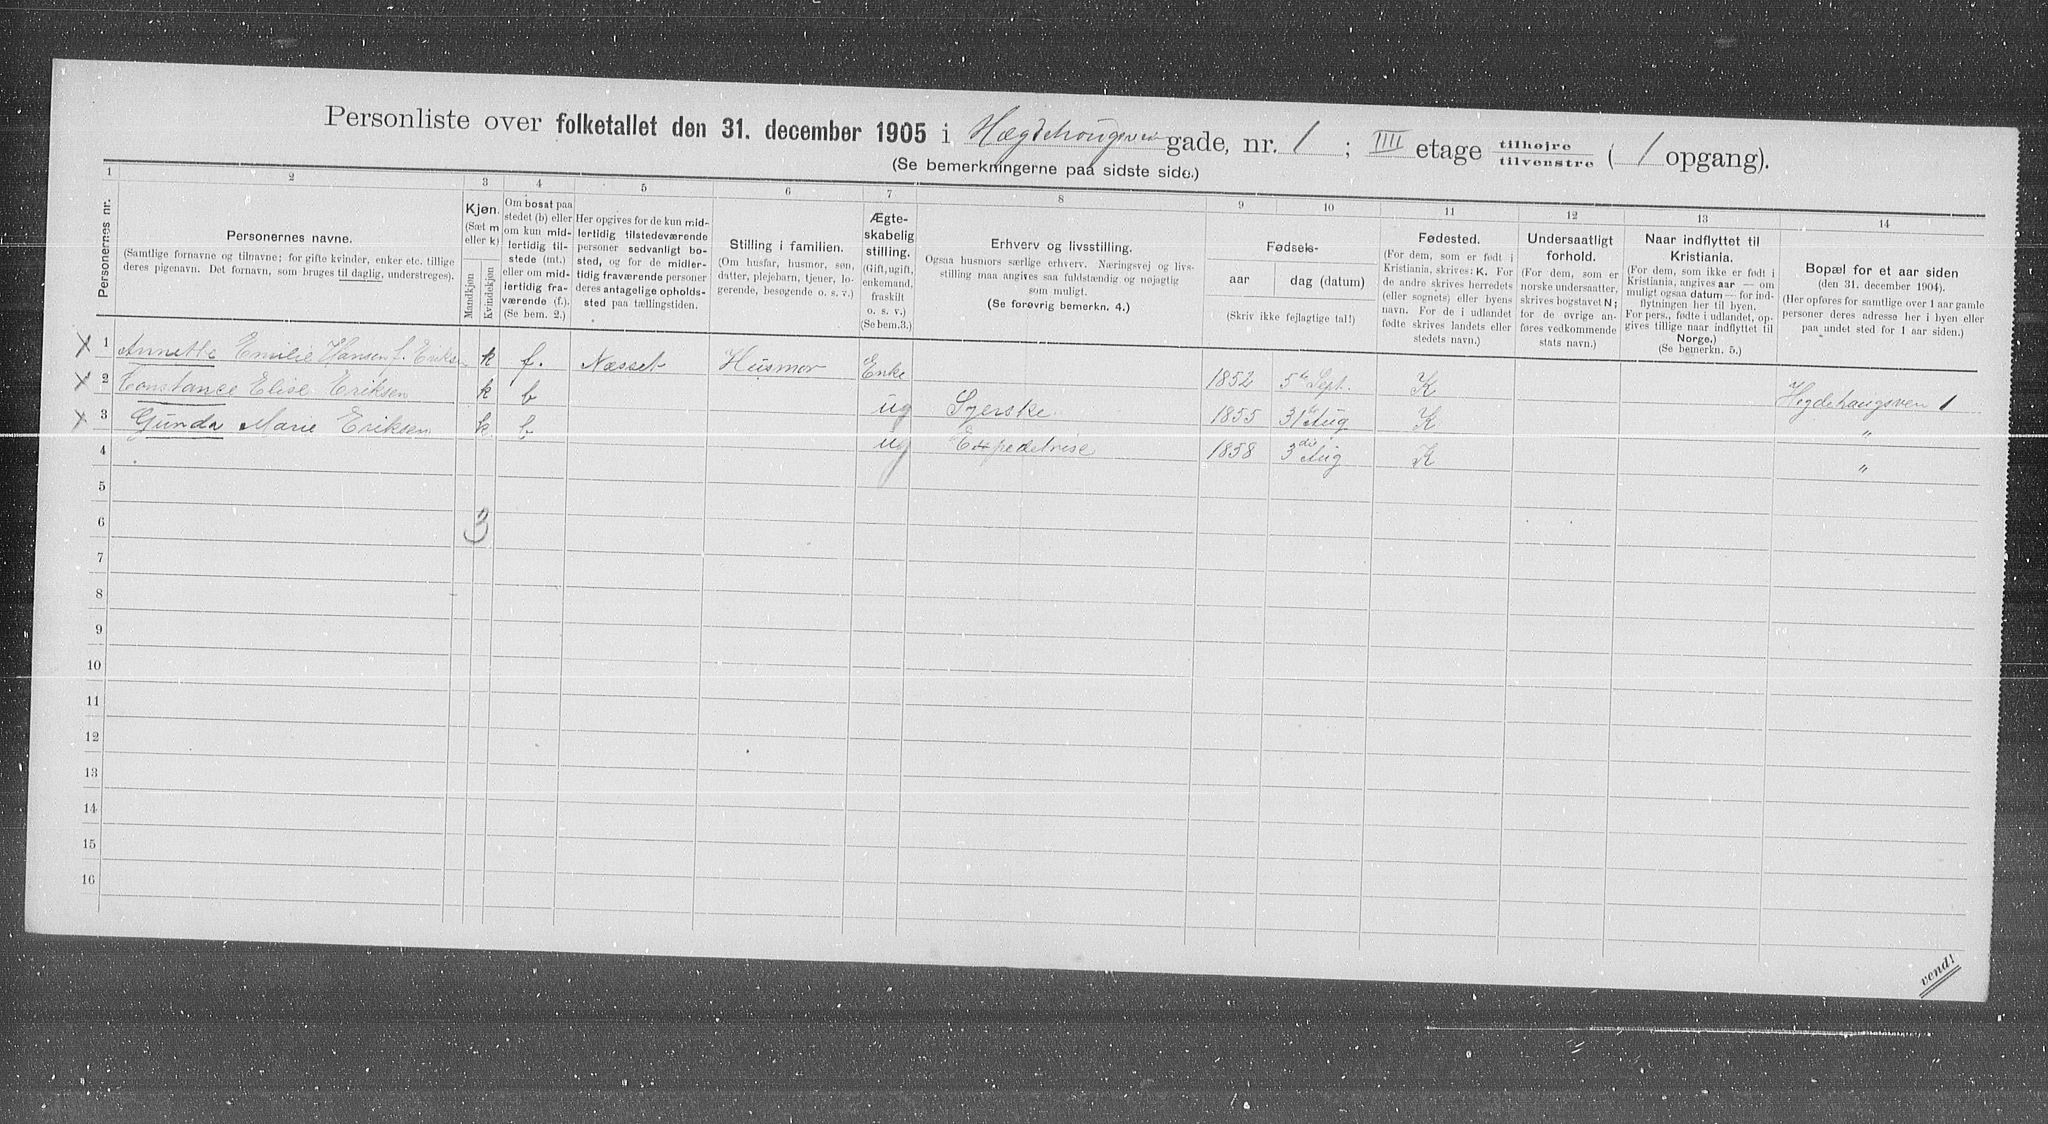 Personliste over folketallet den 31. december 1905 i Hægdehougsveien gade, nr. 1 ; IIII etage tilhøjre tilvenstre ( 1 opgang).
(Se bemerkningerne paa sidste side.)
1 2 3 4 5 6 7 8 9 10 11 12 13 14
Personernes nr.
Personernes navne.
(Samtlige fornavne og tilnavne; for gifte kvinder, enker etc. tillige
deres pigenavn. Det fornavn, som bruges til daglig, understreges).
Kjøn.
(Sæt m
eller k)
Mandkjøn
Kvindekjøn
Om bosat paa
stedet (b) eller
om kun mid-
lertidig til-
stede (mt.)
eller om mid-
lertidig fra-
værende (f.).
(Se bem. 2.)
Her opgives for de kun mid-
lertidig tilstedeværende
personer sedvanligt bo-
sted, og for de midler-
tidig fraværende personer
deres antagelige opholds-
sted paa tællingstiden.
Stilling i familien.
(Om husfar, husmor, søn,
datter, plejebarn, tjener, lo-
gerende, besøgende o. s. v.)
Ægte-
skabelig
stilling.
(Gift, ugift,
enkemand,
fraskilt
o. s. v.)
(Se bem.3.)
Erhverv og livsstilling.
Ogsaa husmors særlige erhverv. Næringsvej og livs-
stilling maa angives saa fuldstændig og nøjagtig
som muligt.
(Se forøvrig bemerkn. 4.)
Fødsels-
aar
dag (datum)
(Skriv ikke fejlagtige tal!)
Fødested.
(For dem, som er født i
Kristiania, skrives: K. For
de andre skrives herredets
(eller sognets) eller byens
navn. For de i udlandet
fødte skrives landets eller
stedets navn.)
Undersaatligt
forhold.
(For dem, som er
norske undersaatter,
skrives bogstavet N;
for de øvrige an-
føres vedkommende
stats navn.)
Naar indflyttet til
Kristiania.
(For dem, som ikke er født i
Kristiania, angives aar — om
muligt ogsaa datum — for ind-
flytningen her til byen.
For pers., fødte i udlandet, op-
gives tillige naar indflyttet til
Norge.)
(Se bemerkn. 5.)
Bopæl for et aar siden
(den 31. december 1904).
(Her opføres for samtlige over 1 aar gamle
personer deres adresse her i byen eller
paa andet sted for 1 aar siden.)
X 1 Annette Emilie Hansen f. Eriksen k f. Næsset Husmor Enke 1852 5te Sept. K Hegdehaugsven 1
X 2 Constance Elise Eriksen k b ug Syerske 1855 31te Aug K "
X 3 Gunda Marie Eriksen k b ug Expeditrise 1858 3die Aug K "
4
5
6 3
7
8
9
10
11
12
13
14
15
16
vend!